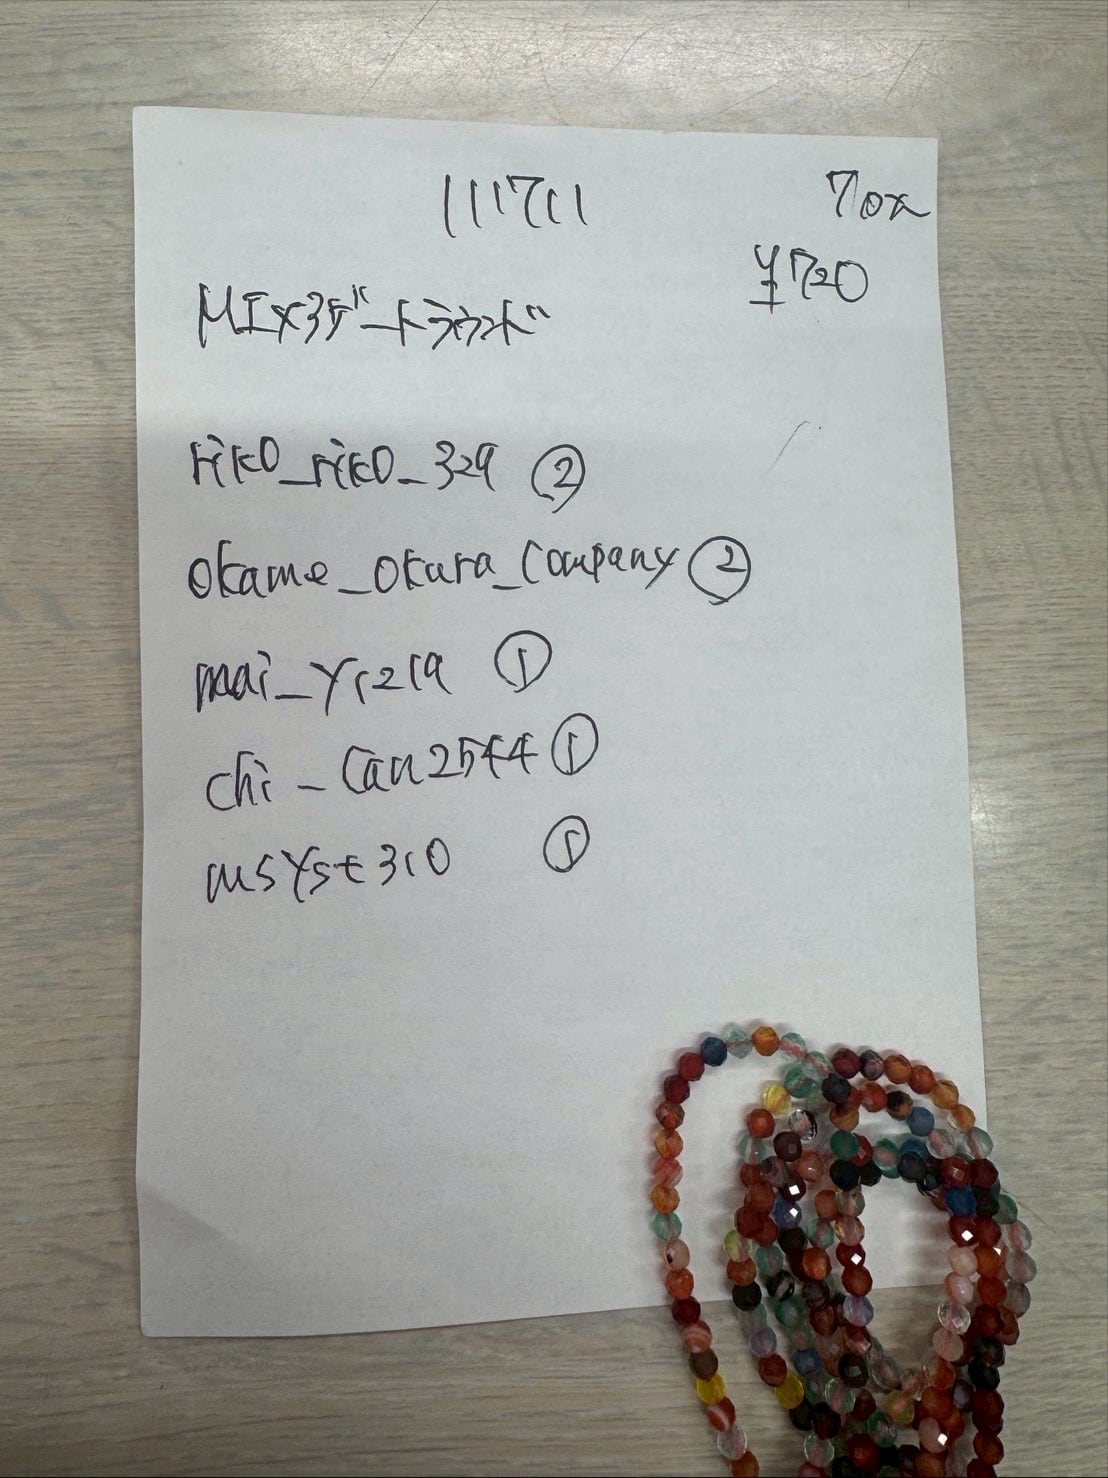 111711
7本
¥720
MIX3ミリカットラウンド
riko_riko_329 ②
okame_okura_company ②
mai_yr219 ①
chi_can2544 ①
msyst310 ①